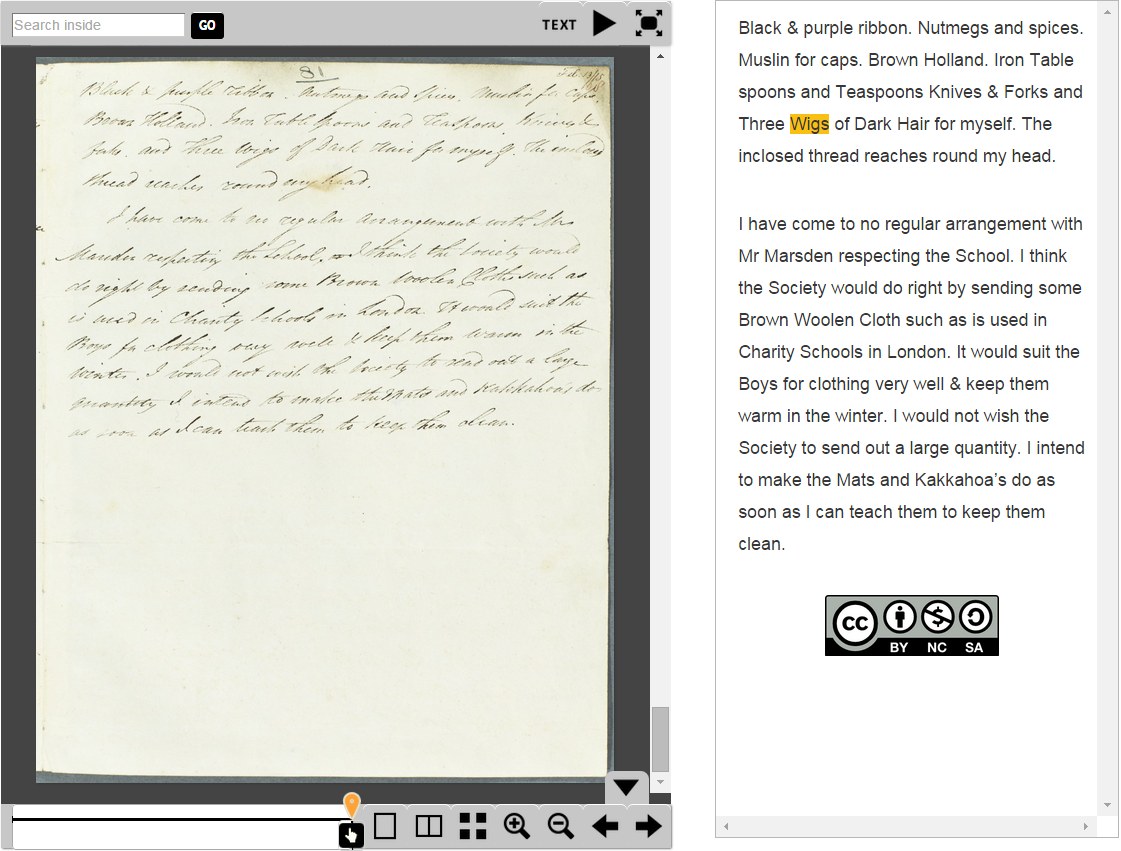 Search inside
GO
TEXT
81
Black & purple ribbon. Nutmegs and Spices. Muslin for Caps.
Brown Holland. Iron Table Spoons and Teaspoons. Knives &
forks. and Three Wigs of Dark Hair for myself. The inclosed
thread reaches round my head.
I have come to no regular arrangement with Mr
Marsden respecting the School. I think the Society would
do right by sending some Brown Woolen Cloth such as
is used in Charity Schools in London. It would suit the
Boys for clothing very well & keep them warm in the
winter. I would not wish the Society to send out a large
quantity I intend to make the Mats and Kakkahoa's do
as soon as I can teach them to keep them clean.
Black & purple ribbon. Nutmegs and spices.
Muslin for caps. Brown Holland. Iron Table
spoons and Teaspoons Knives & Forks and
Three Wigs of Dark Hair for myself. The
inclosed thread reaches round my head.
I have come to no regular arrangement with
Mr Marsden respecting the School. I think
the Society would do right by sending some
Brown Woolen Cloth such as is used in
Charity Schools in London. It would suit the
Boys for clothing very well & keep them
warm in the winter. I would not wish the
Society to send out a large quantity. I intend
to make the Mats and Kakkahoa’s do as
soon as I can teach them to keep them
clean.
cc
BY NC SA